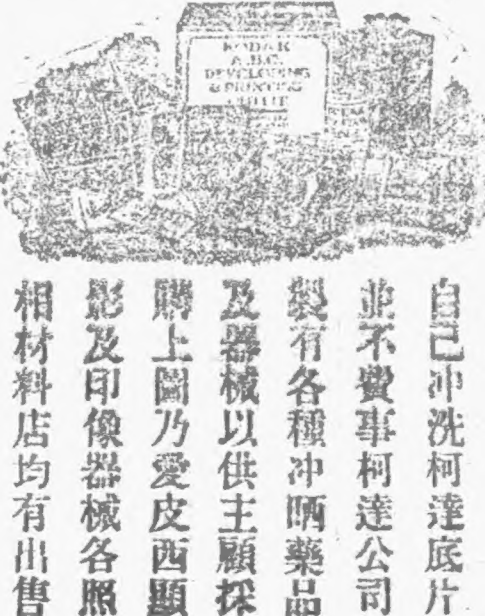 KODAK
A.B.C.
DEVELOPING
& PRINTING
OUTFIT
自己冲洗柯達底片
並不費事柯達公司
製有各種冲晒藥品
及器械以供主顧採
購上圖乃愛皮西顯
影及印像器械各照
相材料店均有出售